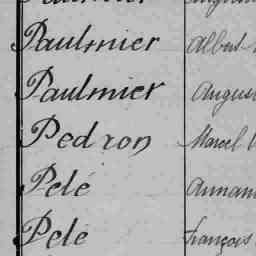 Paulmier Albert
Paulmier August
Pedron Marcel
Pelé Armand
Pelé François